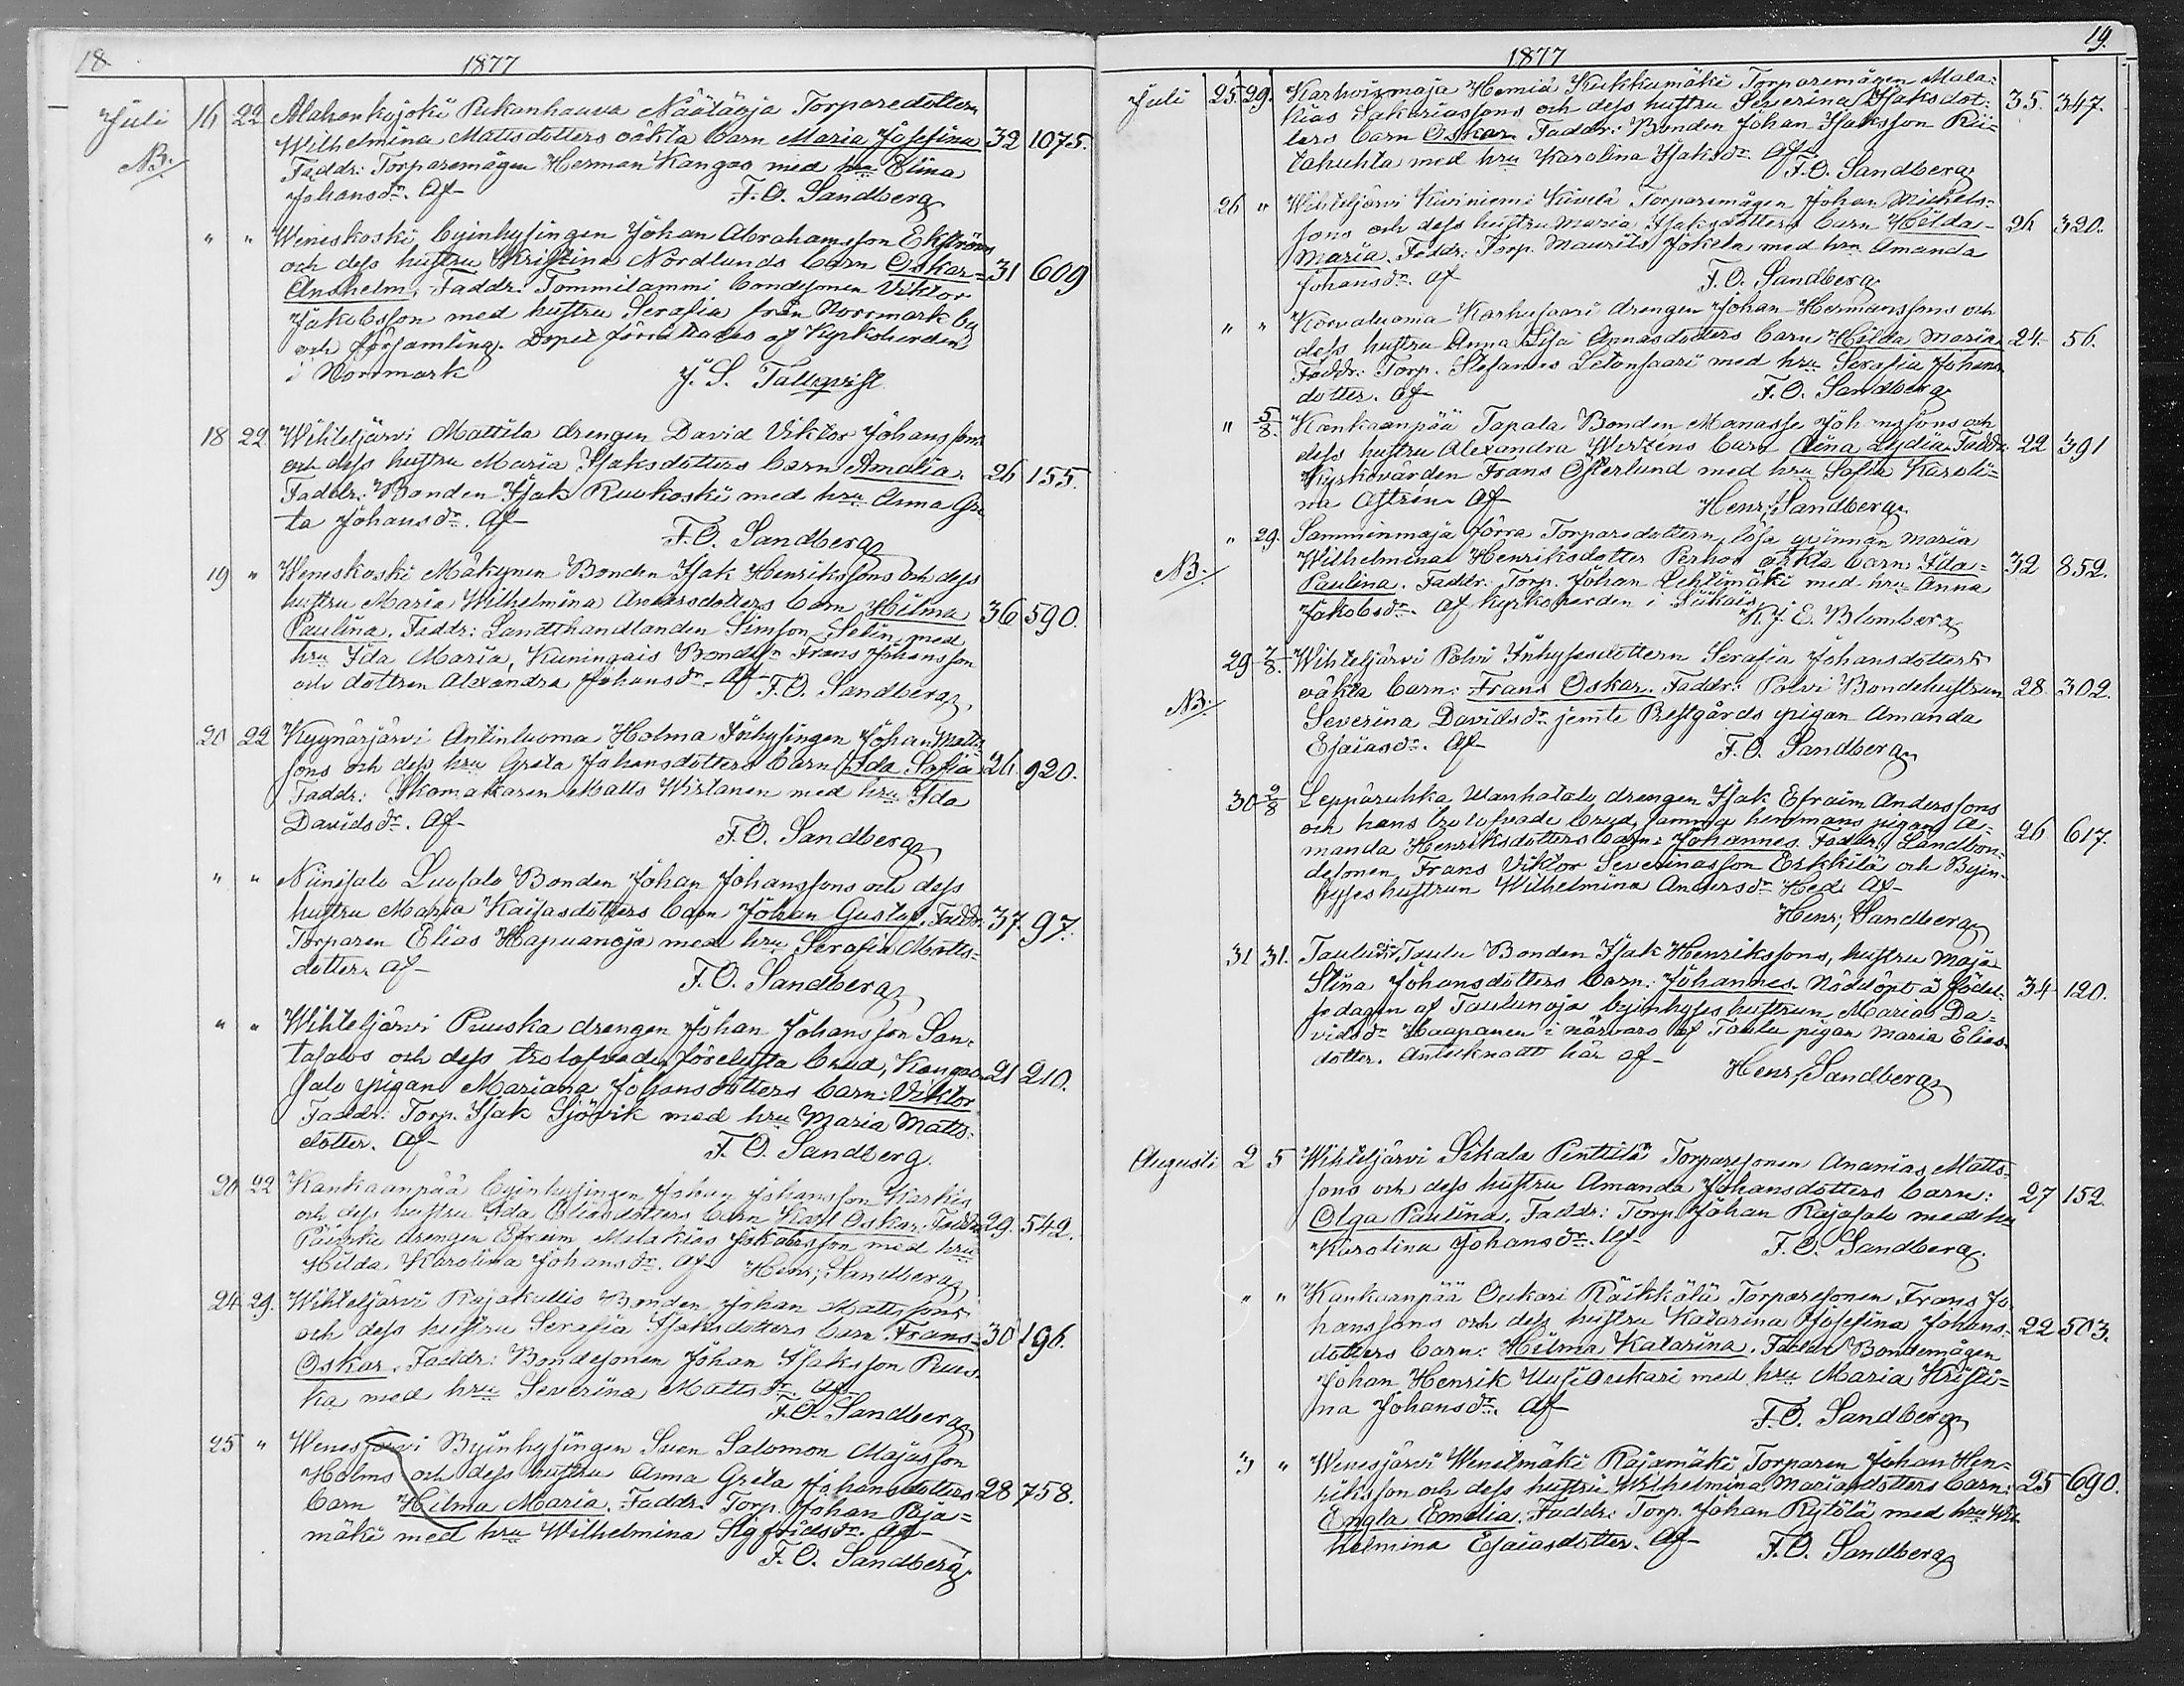 18
1877
Juli 16 22 Alahonkajoki Pukanhaava Näätäoja Torparedottern
Wilhelmina Mattsdotters oäkta barn Maria Josefina 32 1075.
NB. Faddr: Torparemågen Herman Kangas med hru Elina
Johansdr. Af F. O. Sandberg
" " Weneskoski byinhysingen Johan Abrahamsson Ekströms
och dess hustru Kristina Nordlunds barn Oskar= 31 609
Anshelm. Faddr: Tommilammi bondesonen Viktor
Jakobsson med hustru Serafia från Norrmark by
och församling. Dopet förrättades af Kyrkoherden
i Norrmark J. S. Tallqvist
18 22 Wihteljärvi Mattila drengen David Viktor Johanssons
och dess hustru Maria Isaksdotters barn Amalia. 26 155.
Faddr: Bonden Isak Ruokoski med hru Anna Gre
ta Johansdr. Af F. O. Sandberg
19 " Weneskoski Mäkynen Bonden Isak Henrikssons och dess
hustru Maria Wilhelmina Andersdotters barn Hilma 36 590.
Paulina. Faddr: Landthandlanden Simson Selin med
hru Ida Maria, Kuningais Bonden Frans Johansson
och dottren Alexandra Johansdr. Af F. O. Sandberg
20 22 Kyynärjärvi Antinluoma Holma Inhysingen Johan Matts
sons och dess hru Greta Johansdotters barn Ida Sofia 26 920.
Faddr: Skomakaren Matts Wirtanen med hru Ida
Davidsdr. Af F. O. Sandberg
" " Niinisalo Luosalo Bonden Johan Johanssons och dess
hustru Maria Kaisasdotters barn Johan Gustaf. Faddr: 37. 97.
Torparen Elias Hapuanoja med hru Serafia Matts=
dotter. Af F. O. Sandberg
" " Wihteljärvi Puuska drengen Johan Johansson San=
tasalos och dess trolofvade förelysta brud, Kangas 21 210.
salo pigan Mariana Johansdotters barn: Viktor
Faddr: Torp. Isak Sjövik med hru Maria Matts=
dotter. Af F. O. Sandberg.
20 22 Kankaanpää byinhysingen Johan Johansson Karkis
och dess hustru Ida Eliasdotters barn Karl Oskar. Faddr: 29. 542.
drengen Efraim Melakias Jakobsson med hru
Hilda Karolina Johansdr. Af Henr; Sandberg
24 29. Wihteljärvi Rajakallis Bonden Johan Mattssons
och dess hustru Serafia Isaksdotters barn Frans= 30 196.
Oskar. Faddr: Bondesonen Johan Isaksson Puus=
ka med hru Severina Mattsdr. Af
F. O. Sandberg
25 " Wenesjärvi Byinhysingen Sven Salomon Majasson
Holms och dess hustru Anna Greta Johansdotters 28 758.
barn Hilma Maria. Faddr: Torp. Johan Raja=
mäki med hru Wilhelmina Sigfridsdr. Af
F. O. Sandberg.
19.
1877
Juli 25 29. Karhoismaja Hemiä Kukkumäki Torparemågen Mala=
kias Sakariassons och dess hustru Severina Isaksdot= 35. 347.
ters barn Oskar Faddr: Bonden Johan Isaksson Rii=
tahuhta med hru Karolina Isaksdr. Af
F. O. Sandberg
26 " Wihteljärvi Kiviniemi Kivelä Torparemågen Johan Michels=
sons och dess hustru Maria Isaksdotters barn Hilda= 26 320.
Maria. Faddr: Torp. Maurits Jokela med hru Amanda
Johansdr. Af F. O. Sandberg
" " Korvaluoma Karhusaari drengen Johan Hermanssons och
dess hustru Anna Lisa Annasdotters barn Hilda Maria 24. 56.
Faddr: Torp. Stefanus Letonsaari med hru Serafia Johans
dotter. Af F. O. Sandberg
" 5/8. Kankaanpää Tapala Bonden Manasse Johanssons och
dess hustru Alexandra Wirzens barn Aina Lydia. Faddr: 22 391
Kyrkovärden Frans Österlund med hru Sofia Karoli=
na Af Henr; Sandberg
" 29. Samminmaja Torparedottern lösa qvinnan Maria
NB. Wilhelmina Henriksdotter Perhos oäkta barn: Ida= 32 852.
Paulina. Faddr: Torp. Johan Lehtimäki med hru Anna
Jakobsdr. Af kyrkoherden i Siikais
K. J. E. Blomberg
29 7/8. Wihteljärvi Polvi Inhysesdottern Serafia Johansdotters
NB. oäkta barn: Frans Oskar. Faddr: Polvi Bondehustrun 28. 302.
Severina Davidsdr jemte Prestgårds pigan Amanda
Esaiasdr. Af F. O. Sandberg
30 9/8 Leppäruhka Wanhatalo drengen Isak Efraim Anderssons
och hans trolofvade brud, samma hemmans pigan A=
manda Henriksdotters barn: Johannes. Faddr: Landbon= 26 617.
desonen Frans Viktor Severinasson Erkkilä och Byin=
hyseshustrun Wilhelmina Andersdr Hed. Af
Henr; Sandberg
31 31. Taulu Taulu Bonden Isak Henrikssons, hustru Maja
Stina Johansdotters barn: Johannes. Nöddöpt å födel= 34 120.
sedagen af Taulunoja byinhyseshustrun Maria Da=
vidsdr Haapanen i närvaro af Taulu pigan Maria Elias=
dotter. Antecknadt här af Henr; Sandberg
Augusti 2 5 Wihteljärvi Sikala Penttilä Torparesonen Ananias Matts=
sons och dess hustru Amanda Johansdotters barn: 27 152.
Olga Paulina. Faddr: Torp. Johan Rajasalo med hru
Karolina Johansdr. Af F. O. Sandberg.
" " Kankaanpää Oukari Räikkälä Torparesonen Frans Jo
hanssons och dess hustru Katarina Josefina Johans= 22 503.
dotters barn: Hilma Katarina. Faddr: Bondemågen
Johan Henrik Uusioukari med hru Maria Kristi=
na Johansdr. Af F. O. Sandberg
3 " Wenesjärvi Wenetmäki Rajamäki Torparen Johan Hen=
riksson och dess hustru Wilhelmina Mariasdotters barn: 25 690.
Engla Emelia. Faddr: Torp. Johan Rytölä med hru Wil
helmina Esaiasdotter. Af F. O. Sandberg